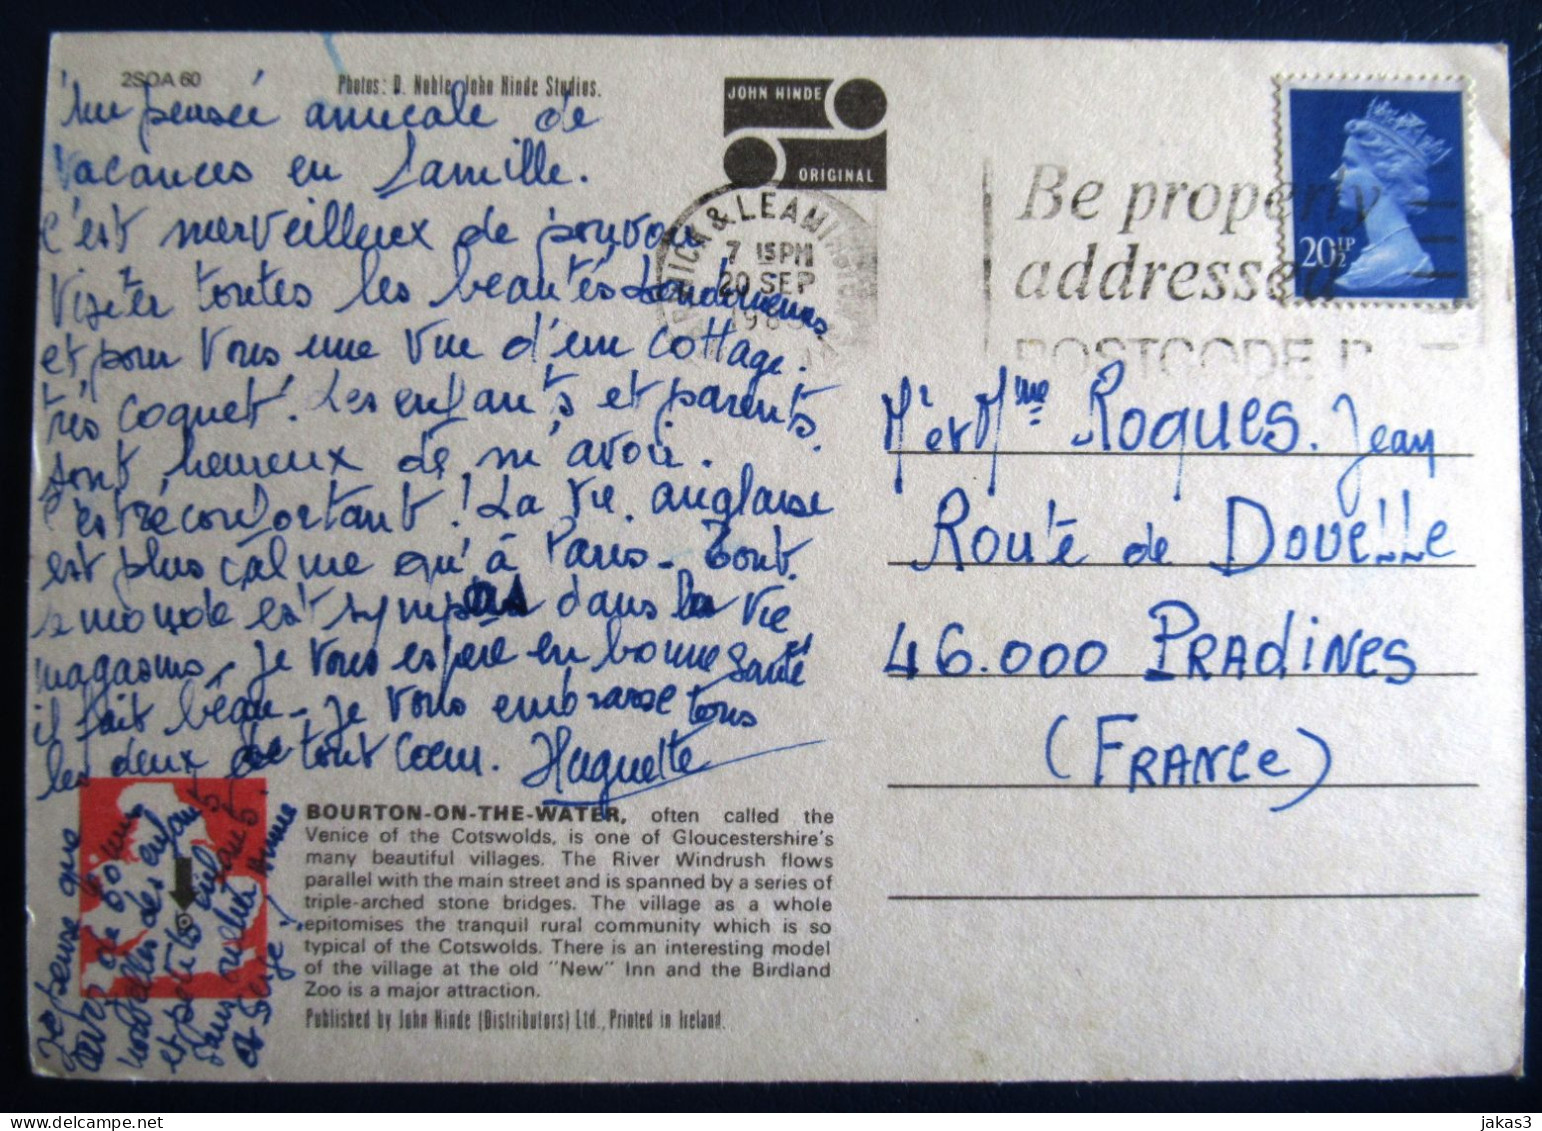 2SOA 60
Photos: D. Noble, John Hinde Studios.
JOHN HINDE
ORIGINAL
Une pensée amicale de
vacances en famille.
c'est merveilleux de pouvoir
visiter toutes les beautés
et pour vous une vue d'un cottage.
très coquet. Les enfants et parents.
sont heureux de m'avoir.
c'est réconfortant! La vie anglaise
est plus calme qu'à Paris - Tout
le monde est sympas dans la vie
magasins - je vous espère en bonne santé
il fait beau - Je vous embrasse tous
les deux de tout cœur. Huguette
Je pense que
avez de bonnes
nouvelles des enfants
et petits enfants
sans oublier Anne
et Serge
BOURTON-ON-THE-WATER, often called the
Venice of the Cotswolds, is one of Gloucestershire's
many beautiful villages. The River Windrush flows
parallel with the main street and is spanned by a series of
triple-arched stone bridges. The village as a whole
epitomises the tranquil rural community which is so
typical of the Cotswolds. There is an interesting model
of the village at the old "New" Inn and the Birdland
Zoo is a major attraction.
Published by John Hinde (Distributors) Ltd., Printed in Ireland.
WARWICK & LEAMINGTON SPA
7 15 PM
20 SEP
Be properly
addressed
POSTCODE
20½P
Mr et Mme Roques. Jean
Route de Douelle
46.000 PRADINES
(FRANCE)
jakas3